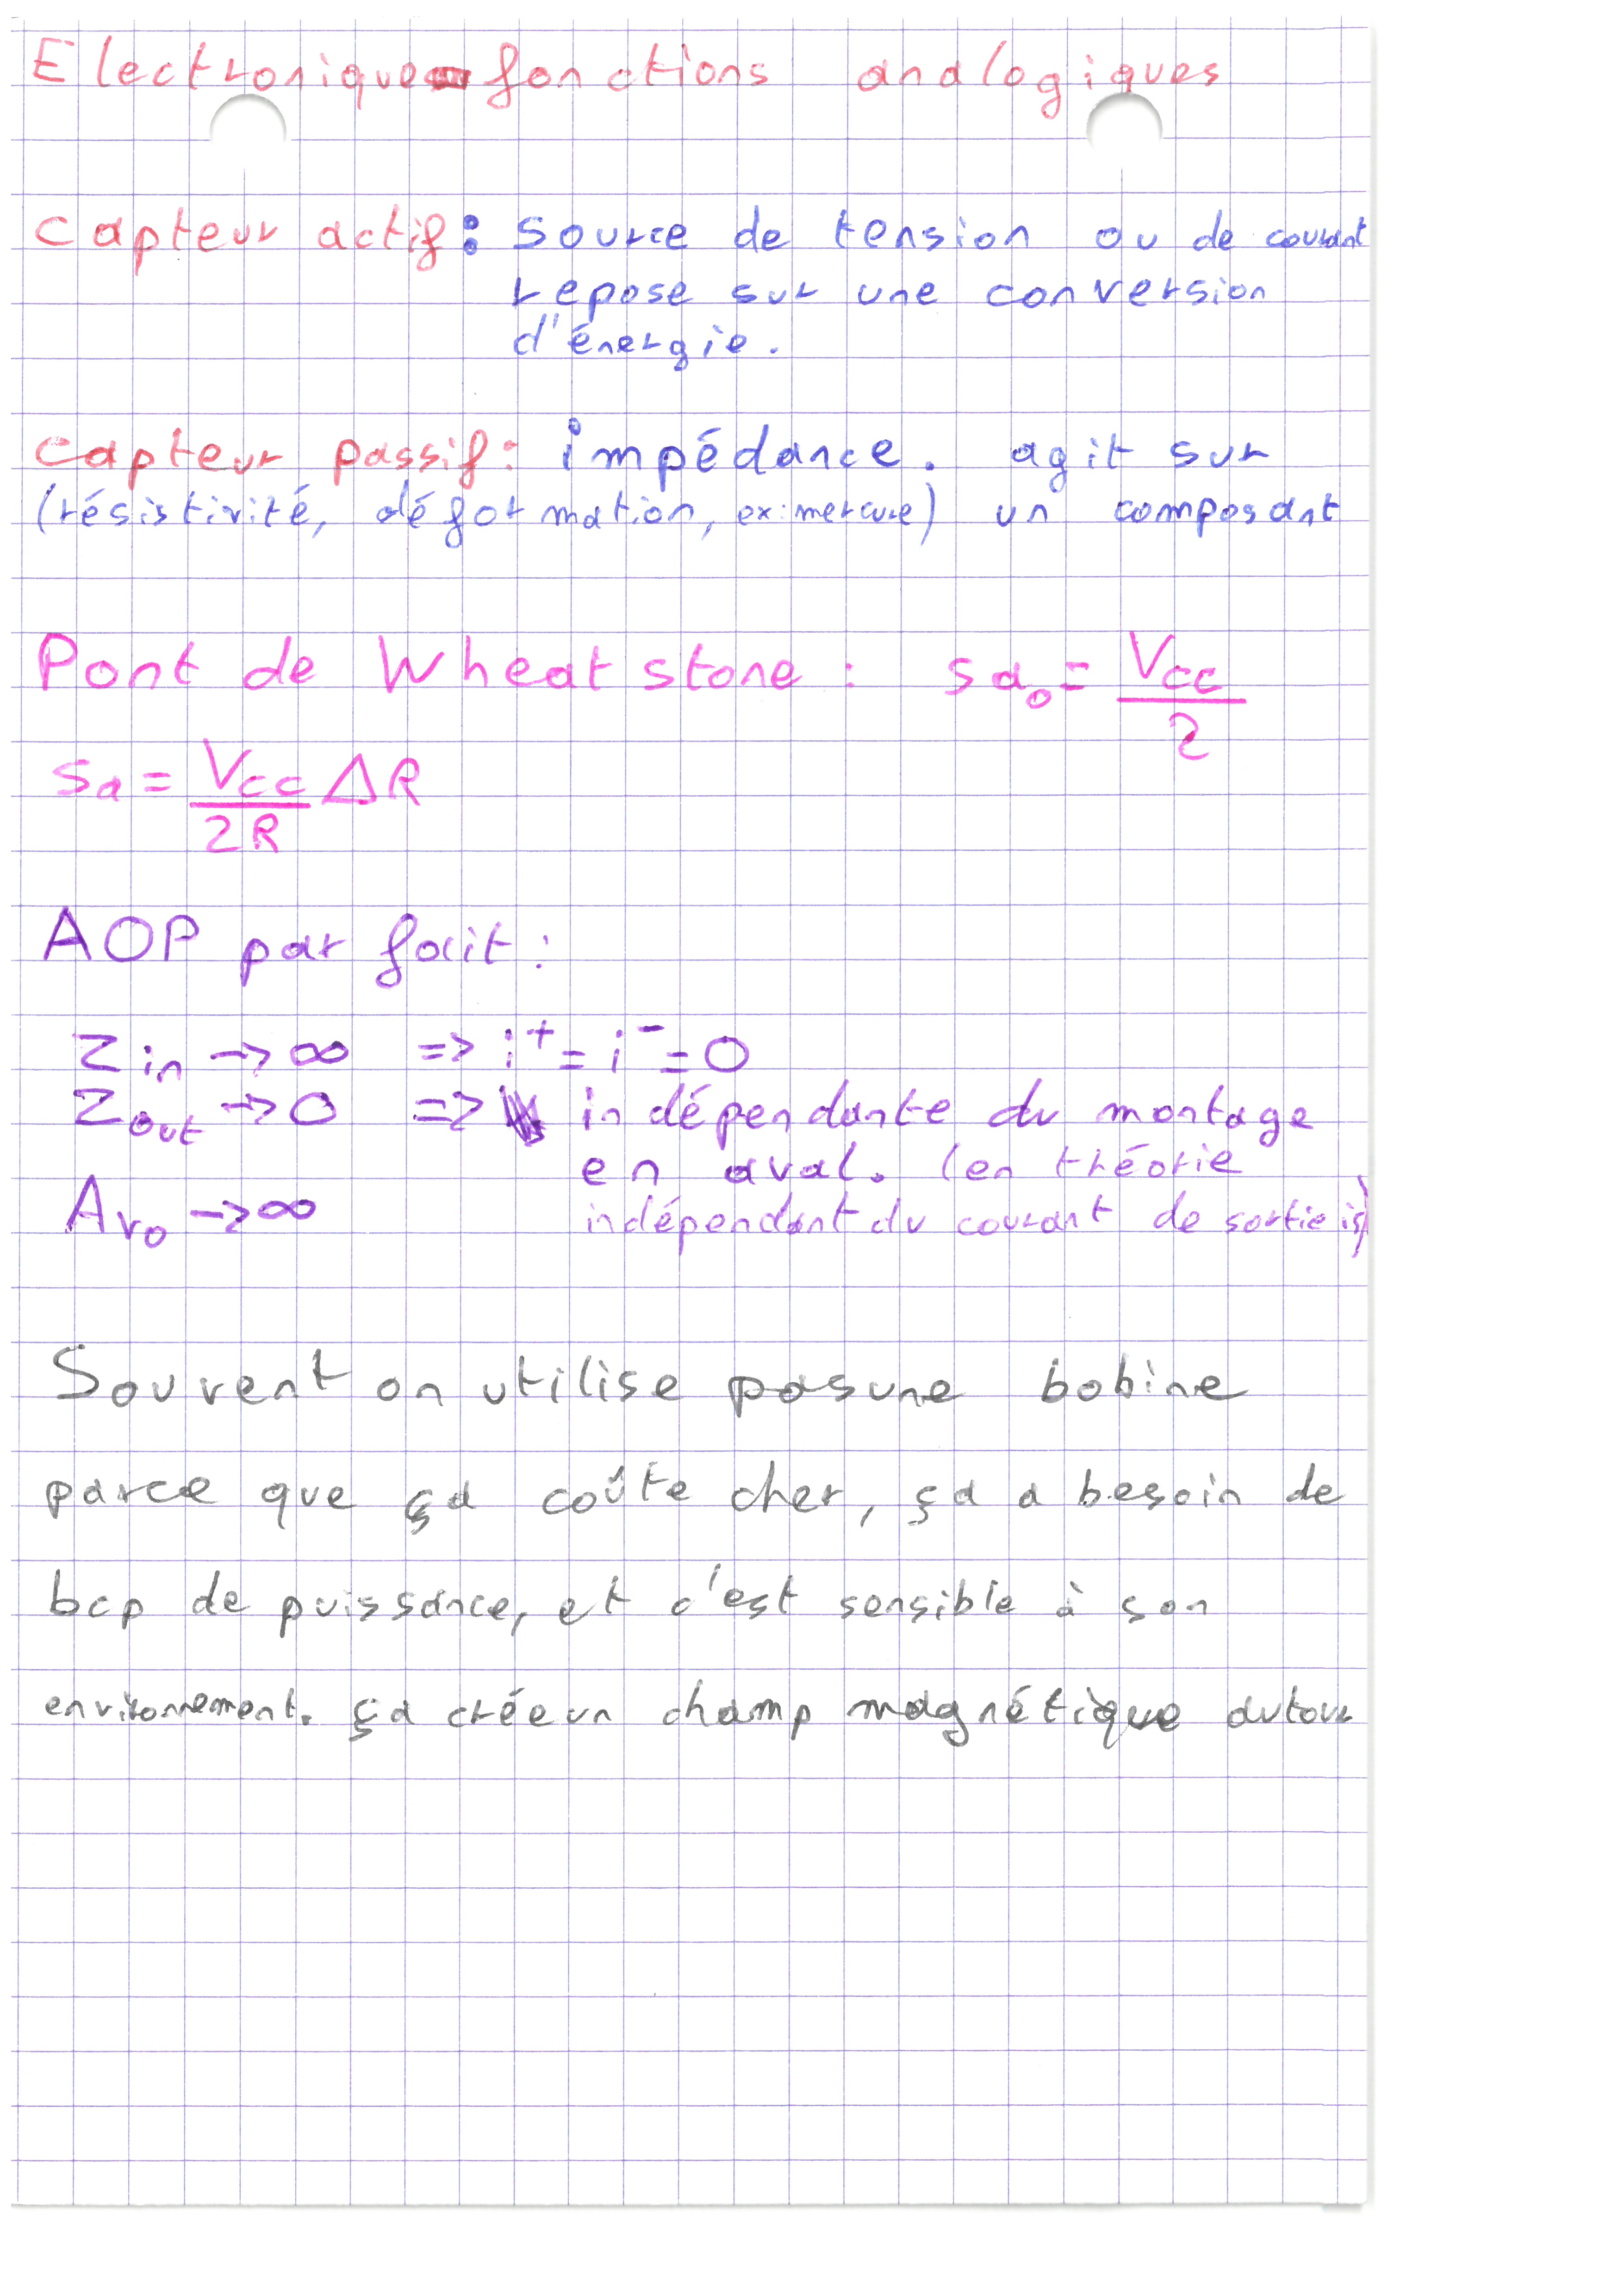 Electronique fonctions analogiques
Capteur actif : source de tension ou de courant
repose sur une conversion
d'énergie.
Capteur passif : impédance. agit sur
(résistivité, déformation, ex:mercure) un composant
Pont de Wheatstone : sa₀ = Vcc/2
sa = Vcc/2R ΔR
AOP parfait :
Zin → ∞ => i⁺ = i⁻ = 0
Zout → 0 => indépendante du montage
en aval. (en théorie
Avo → ∞ indépendant du courant de sortie is)
Souvent on utilise pas une bobine
parce que ça coûte cher, ça a besoin de
bcp de puissance, et c'est sensible à son
environnement. ça crée un champ magnétique autour